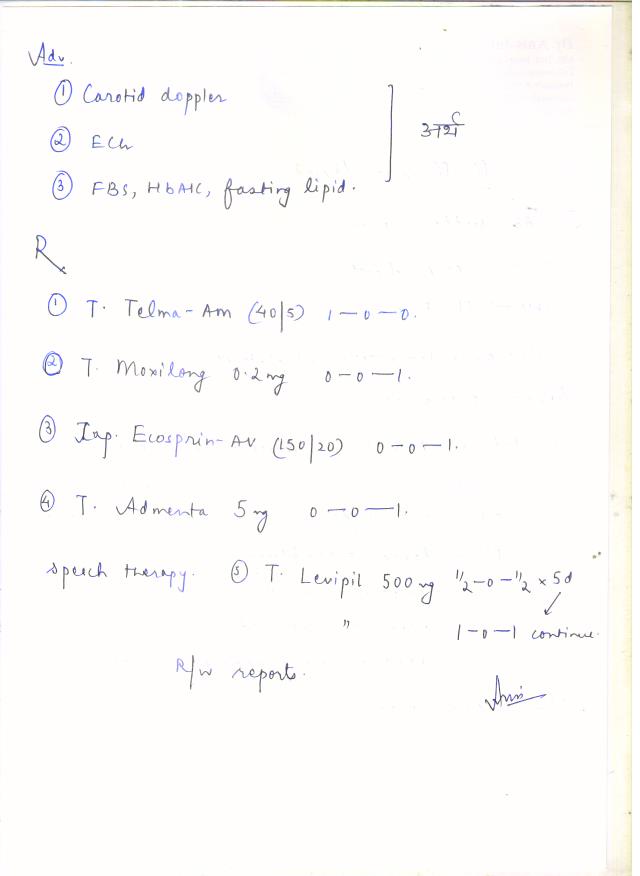 Adv.
① Carotid doppler
② ECh
③ FBS, HbA1C, fasting lipid.
अर्थ
R
① T. Telma-Am (40/5) 1—0—0.
② T. Moxilong 0.2mg 0—0—1.
③ Cap. Ecosprin-AV (150/20) 0—0—1.
④ T. Admenta 5mg 0—0—1.
speech therapy. ⑤ T. Levipil 500mg 1/2—0—1/2 x 5d
" 1—0—1 continue.
R/w reports.